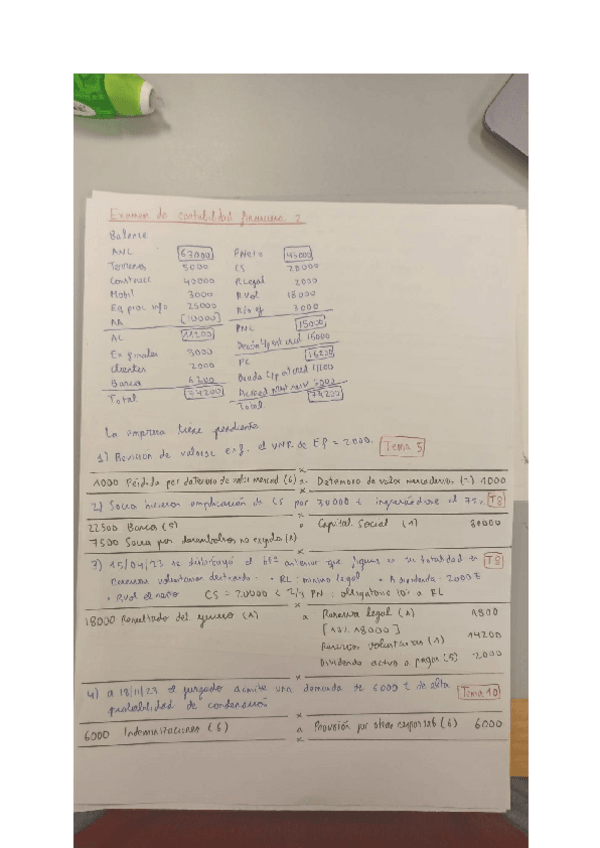 Examen de contabilidad financiera 2
Balance
ANC 67000 PNeto 43000
Terrenos 9000 CS 20000
Construcc 40000 RLegal 2000
Mobil 3000 RVol 18000
Eq proc info 25000 3000
AA [10000] PNC 15000
AC 11200 15000
Ex finales 3000 PC 16200
Clientes 2000 Deuda
Banco
Total 74200 Total 74200
La empresa tiene pendiente
1) Revisión de valorac e.f. el VNR de EF = 2000. Tema 5
1000 Pérdida por deterioro de valor mercad (6) a Deterioro de valor mercaderías (-) 1000
2) Socios hicieron ampliación de CS por 30000 € ingresándose el 75% T8
22500 Banco (5) a Capital Social (1) 30000
7500 Socios por desembolsos no exigido (1)
3) 15/04/23 se distribuyó el bfº anterior que figura en su totalidad en T8
reservas voluntarias destinado: • RL: mínimo legal • A dividendo: 2000 €
• RVol el resto CS = 20000 < PN: obligatorio 10% a RL
18000 Resultado del ejercicio (1) a Reserva legal (1) 1800
[10% 18000]
Reservas voluntarias (1) 14200
Dividendo activo a pagar (5) 2000
4) a 18/11/23 el juzgado admite una demanda de 6000 € de alta Tema 10
probabilidad de condena
6000 Indemnizaciones (6) a Provisión por otras responsab (6) 6000